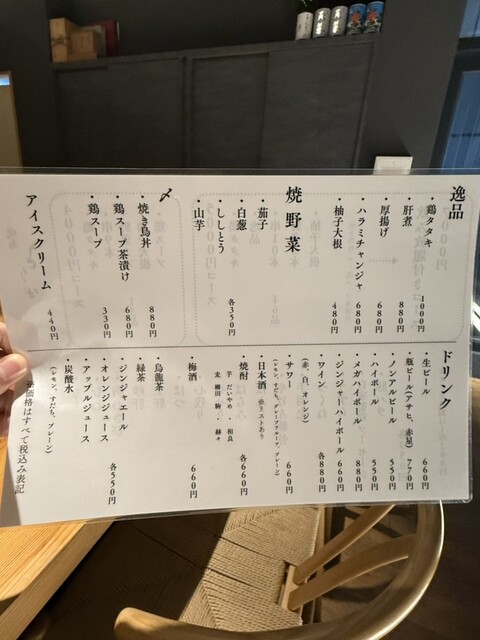 逸品
・鶏タタキ 1000円
・肝煮 880円
・厚揚げ 680円
・ハラミチャンジャ 680円
・柚子大根 480円
焼野菜
・茄子
・白葱
・ししとう
・山芋
各350円
〆
・焼き鳥丼 880円
・鶏スープ茶漬け 680円
・鶏スープ 330円
アイスクリーム 440円
ドリンク
・生ビール 660円
・瓶ビール(アサヒ、赤星) 770円
・ノンアルビール 550円
・ハイボール 550円
・メガハイボール 880円
・ジンジャーハイボール 660円
・ワイン 各880円
(赤、白、オレンジ)
・サワー 660円
(レモン、すだち、グレープフルーツ、プレーン)
・日本酒 壺リストあり
・焼酎 各660円
芋 だいやめ 相良
麦 櫛田 駒 赫々
・梅酒 660円
・烏龍茶
・緑茶
・ジンジャエール
・オレンジジュース
・アップルジュース
・炭酸水
(レモン、すだち、プレーン)
各550円
価格はすべて税込み表記